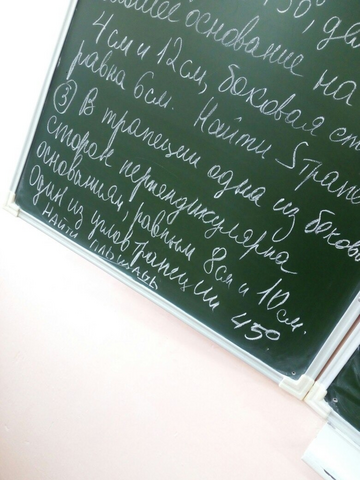 150°,
основание на
4 см и 12 см, боковая
равна 6 см. Найти S
③ В трапеции одна из
сторон перпендикулярна
основаниям, равным 8 см и 10 см.
один из углов трапеции 45°
найти площадь